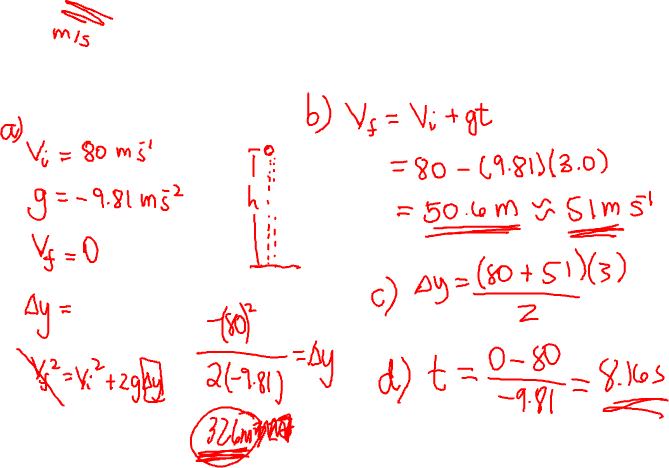 m/s
a)
Vi = 80 ms⁻¹
g = -9.81 ms⁻²
Vf = 0
Δy =
Vf² = Vi² + 2gΔy
h
-(80)²
2(-9.81)
= Δy
326m
b) Vf = Vi + gt
= 80 - (9.81)(3.0)
= 50.6 m ≈ 51 m s⁻¹
c) Δy = (80 + 51)(3)
2
d) t = 0 - 80
-9.81
= 8.16 s